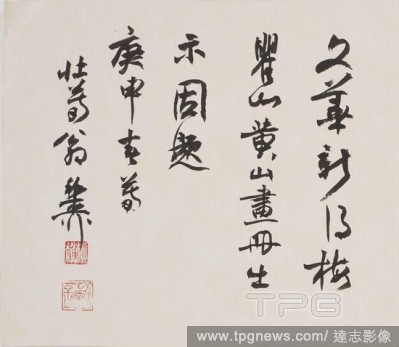 文華新得梅
瞿山黄山畫冊出
示因題
庚申春暮
壯暮翁稚柳
TPG
www.tpgnews.com / 達志影像